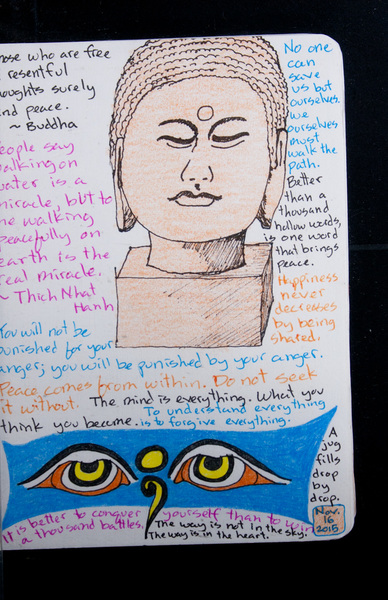 hose who are free
resentful
houghts surely
ind peace.
~ Buddha
eople say
alking on
ater is a
miracle, but to
me walking
peacefully on
earth is the
real miracle.
~ Thich Nhat
Hanh
No one
can
save
us but
ourselves.
We
ourselves
must
walk the
path.
Better
than a
thousand
hollow words,
is one word
that brings
peace.
Happiness
never
decreases
by being
shared.
You will not be
punished for your
anger; you will be punished by your anger.
Peace comes from within. Do not seek
it without. The mind is everything. What you
think you become. To understand everything
is to forgive everything.
A
jug
fills
drop
by
drop.
It is better to conquer yourself than to win
a thousand battles. The way is not in the sky.
The way is in the heart.
Nov.
16
2015